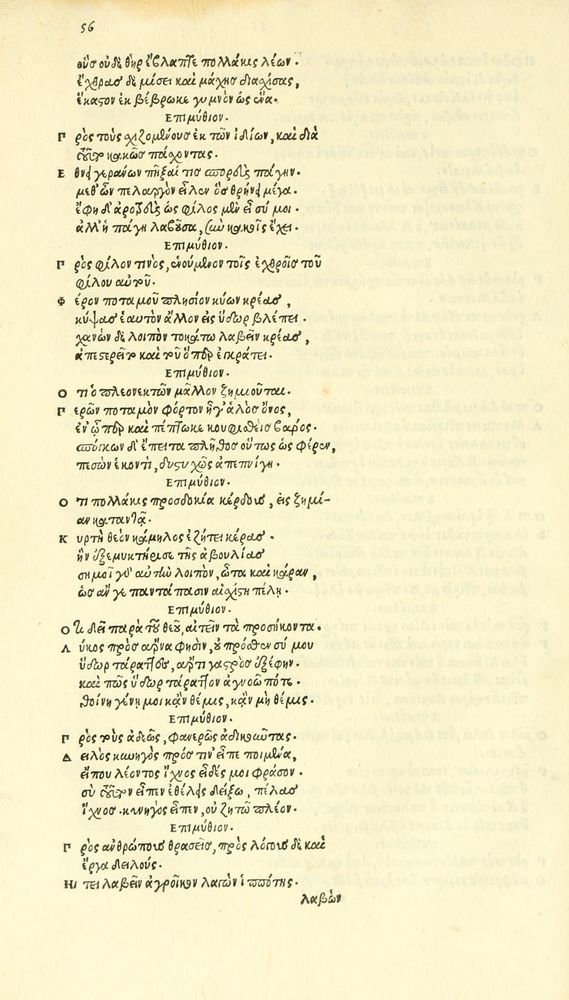 56
οὓς οὐδὲ θὴρ ἔβλαπτε πολλάκις λέων.
ἔχθρας δὲ μίσει καὶ μάχης διαχίσας,
ἕκαστον ἐκ βέβρωκε γυμνὸν ὡς ἕνα.
Επιμύθιον.
Πρὸς τοὺς χιζομένους ἐκ τῶν ἰδίων, καὶ διὰ
τοῦτο κακῶς πάσχοντας.
Εθνη γεράνων πῆξαί τις σπορεὺς πάγην.
μεθ' ὧν πελαργὸν εἷλεν ὃς θρήνει μέγα.
ἔφη δ' ἀροτρεὺς ὡς φίλος μὲν εἶ σύ μοι.
ἀλλ' ἡ πάγη λαβοῦσα, σὺν κακοῖς ἔχει.
Επιμύθιον.
Πρὸς φίλον τινὸς, ἑνούμενον τοῖς ἐχθροῖς τοῦ
φίλου αὐτοῦ.
Φέρον ποταμοῦ πλησίον κύων κρέας,
κύψας ἑαυτὸν ἄλλον εἰς ὕδωρ βλέπει.
χανὼν δὲ λοιπὸν τὸ κάτω λαβεῖν κρέας,
ἀπεστερεῖτο καὶ τοῦ ὅπερ ἐκράτει.
Επιμύθιον.
Οτι ὁ πλεονεκτῶν μᾶλλον ζημιοῦται.
Περῶν ποταμὸν φόρτον ἦγ' ἁλὸς ὄνος,
ἐν ᾧ περ καὶ πέπτωκε κουφισθεὶς βάρος.
σπόγγων δ' ἔπειτα πλῆθος οὕτως ὡς φέρων,
πεσὼν ἑκοντὶ, δυστυχῶς ἀπεπνίγη.
Επιμύθιον.
Οτι πολλάκις προσδοκία κέρδους, εἰς ζημί-
αν καταντᾷ.
Κυρτὴ θεὸν κάμηλος ἐζήτει κέρας.
ἣν ἐξεμυκτήρισε τῆς ἀβουλίας
σημοῖ γ' αὐτὴν λοιπὸν, ὦτα καὶ κάραν,
ὡς ἄν γε παντάπασιν αἰσχίστη πέλῃ.
Επιμύθιον.
Οὐ δεῖ παρὰ τοῦ θεοῦ, αἰτεῖν τὰ προσήκοντα.
Λύκος πρὸς ἄρνα φησὶν, οὐ πρόσθεν σύ μου
ὕδωρ τάραττες, ἀρτιγάστρος ἐξέφην.
καὶ πῶς ὕδωρ τάραττον ἀγνοῶ πότε.
θοίνη γένῃ μοι κἂν θέμις, κἂν μὴ θέμις.
Επιμύθιον.
Πρὸς τοὺς ἀδεῶς, φανερῶς ἀδικοῦντας.
Δειλὸς κυνηγὸς πρός τιν' εἶπε ποιμένα,
εἴ που λέοντος ἴχνος εἶδές μοι φράσον.
σὺ τοῦτον εἶπεν ἐθέλῃς δείξω, πέλας
ἴχνος. κυνηγὸς εἶπεν, οὐ ζητῶ πλέον.
Επιμύθιον.
Πρὸς ἀνθρώπους θρασεῖς, πρὸς λόγους δὲ καὶ
ἔργα δειλούς.
Ηι τει λαβεῖν ἀγροῖκον λαγὼν ἱππότης.
λαβὼν